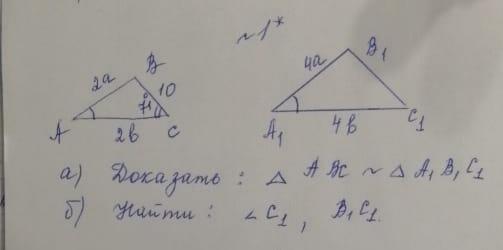 ~1*
B
2a
10
71°
A
2b
C
B₁
4a
A₁
4b
C₁
а) Доказать : △ ABC ~ △ A₁B₁C₁
б) Найти : ∠C₁, B₁C₁.